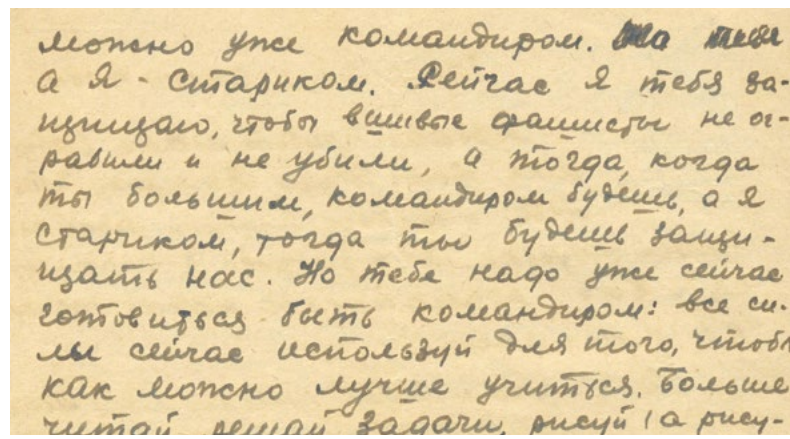 можно уже командиром.
а я - стариком. Сейчас я тебя за-
щищаю, чтобы вшивые фашисты не ог-
рабили и не убили, а тогда, когда
ты большим, командиром будешь, а я
стариком, тогда ты будешь защи-
щать нас. Но тебе надо уже сейчас
готовиться быть командиром: все си-
лы сейчас используй для того, чтобы
как можно лучше учиться. Больше
читай решай задачи, рисуй (а рису-